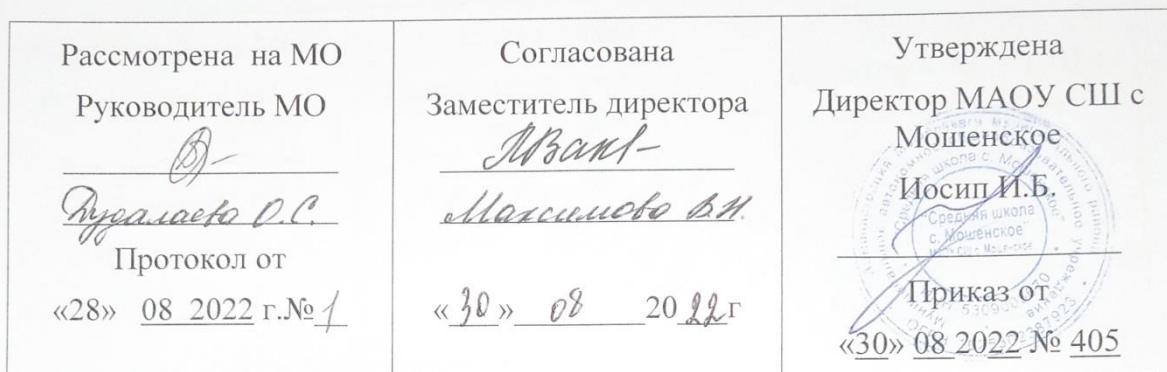 Рассмотрена на МО
Руководитель МО
О.С.
Протокол от
«28» 08 2022 г.№ 1
Согласована
Заместитель директора
Максимова В.Н.
«30» 08 2022г
Утверждена
Директор МАОУ СШ с
Мошенское
Иосип И.Б.
"Средняя школа
с. Мошенское"
Приказ от
«30» 08 2022 № 405